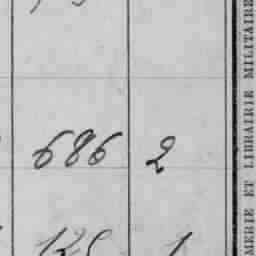 686 2
125 1
MERIE ET LIBRAIRIE MILITAIRE